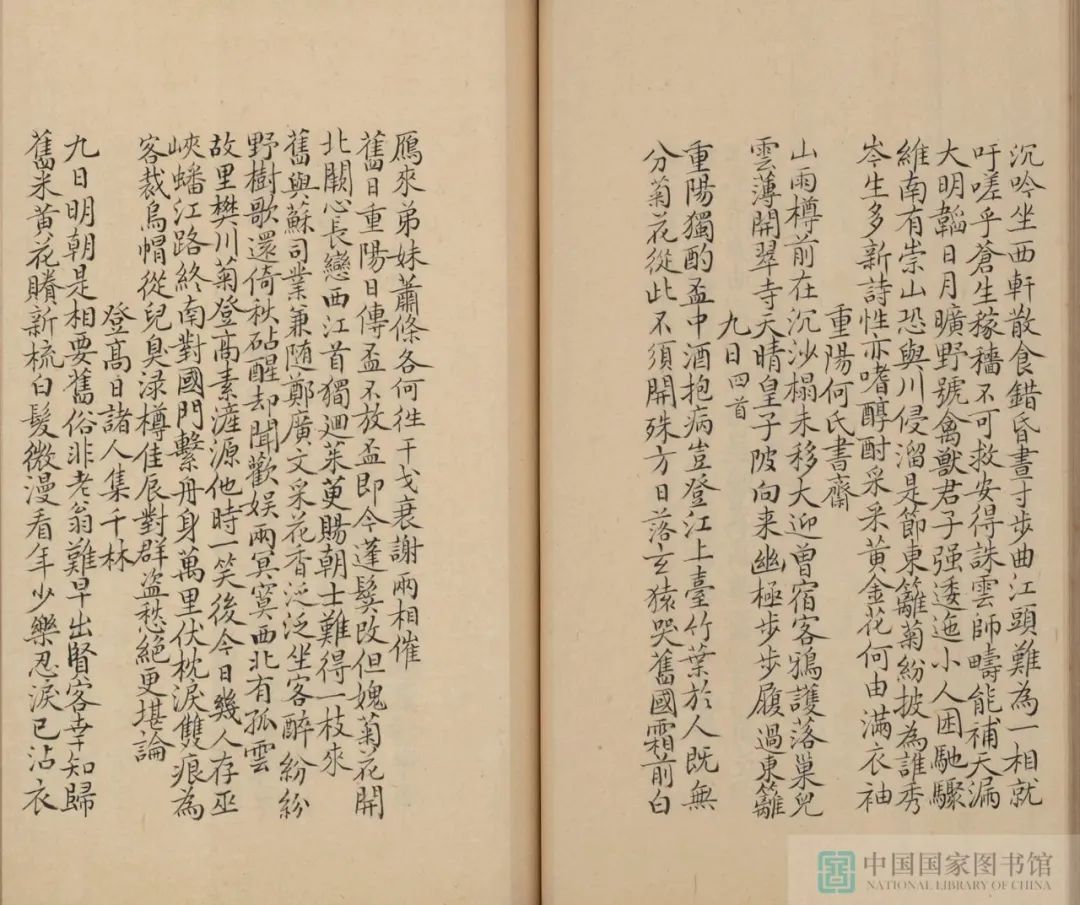 沉吟坐西軒散食錯昏晝寸步曲江頭難為一相就
吁嗟乎蒼生稼穡不可救安得誅雲師疇能補天漏
大明韜日月曠野號禽獸君子强逶迤小人困馳驟
維南有崇山恐與川侵溜是節東籬菊紛披為誰秀
岑生多新詩性亦嗜醇酎采采黃金花何由滿衣袖
重陽何氏書齋
山雨樽前在沉沙榻未移大迎曾宿客鴉護落巢兒
雲薄開翠寺天晴皇子陂向来幽極步步履過東籬
九日四首
重陽獨酌盃中酒抱病豈登江上臺竹葉於人既無
分菊花從此不須開殊方日落玄猿哭舊國霜前白
鴈來弟妹蕭條各何徃干戈衰謝兩相催
舊日重陽日傳盃不放盃即今蓬鬂改但媿菊花開
北闕心長戀西江首獨迴茱萸賜朝士難得一枝來
舊與蘇司業兼随鄭廣文采花香泛泛坐客醉紛紛
野樹歌還倚秋砧醒却聞歡娱兩冥寞西北有孤雲
故里樊川菊登高素滻源他時一笑後今日幾人存巫
峽蟠江路終南對國門繫舟身萬里伏枕淚雙痕為
客裁烏帽從兒具渌樽佳辰對群盗愁絕更堪論
登高日諸人集千林
九日明朝是相要舊俗非老翁難早出賢客幸知歸
舊采黃花賸新梳白髮微漫看年少樂忍淚已沾衣
中国国家图书馆
NATIONAL LIBRARY OF CHINA